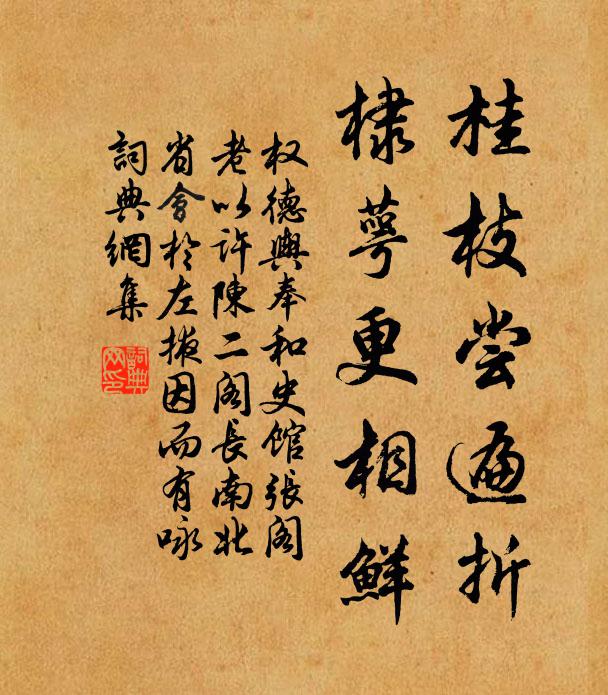 桂枝尝遍折
棣萼更相鲜
权德輿奉和史馆張阁
老以许陳二阁長南北
省會於左掖因而有咏
詞典網集
詞典
网印